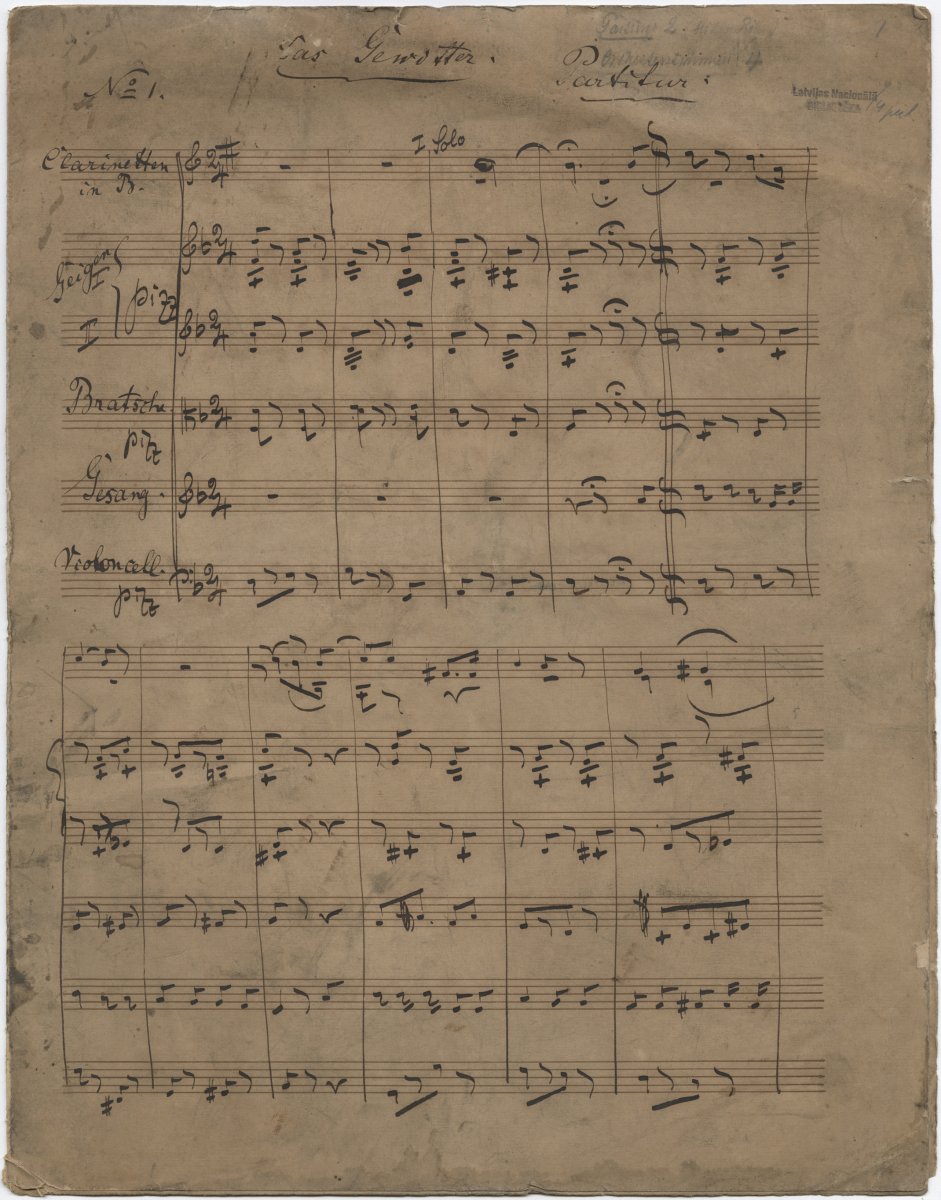 Das Gewitter.
No 1.
Partitur:
1
Latvijas Nacionālā
I Solo
Clarinetten
in B.
Geigen
I
pizz
II
Bratsche.
pizz
Gesang.
Violoncell.
pizz